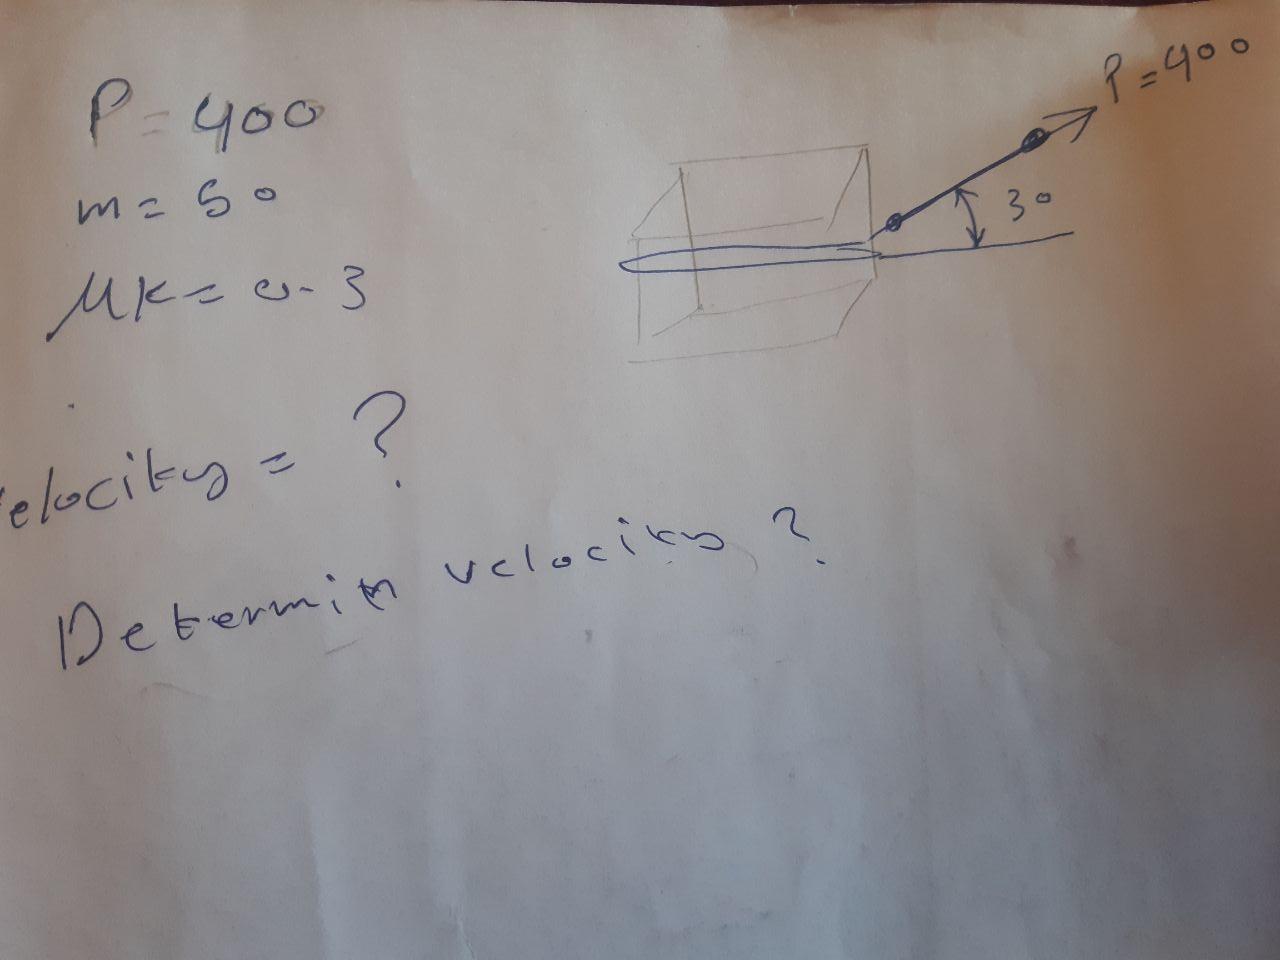 P = 400
m = 50
μk = 0.3
velocity = ?
Determin velocity ?
P = 400
30